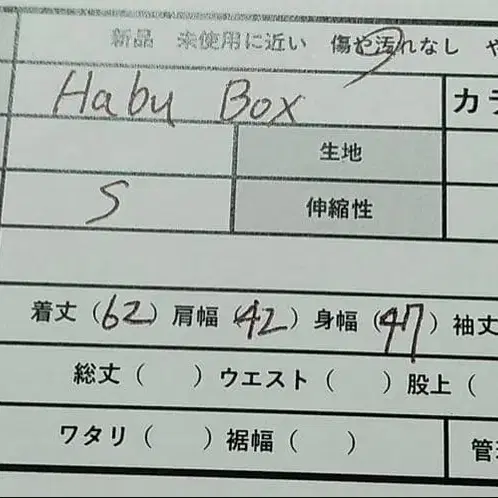 新品 未使用に近い 傷や汚れなし や
Habu Box カラ
生地
S 伸縮性
着丈(62) 肩幅(42) 身幅(47) 袖丈
総丈( ) ウエスト( ) 股上(
ワタリ( ) 裾幅( ) 管